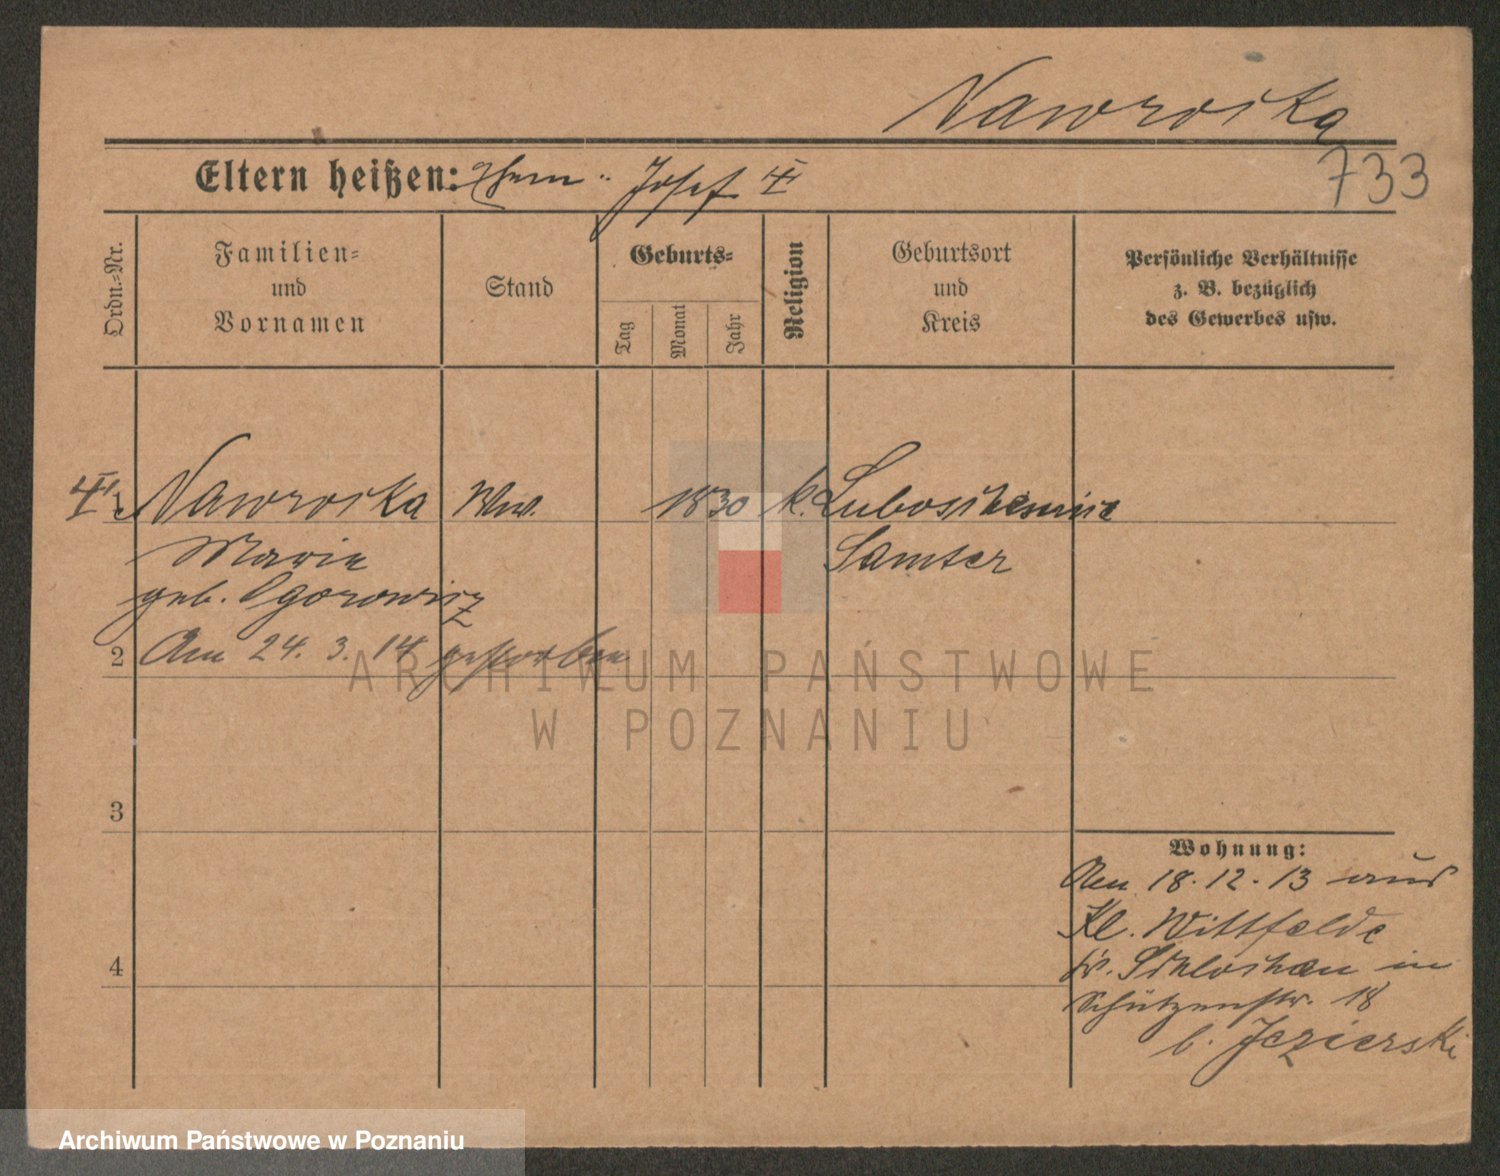 Nawroska
733
Eltern heißen: Ehem. Josef
Ordn.-Nr.
Familien-
und
Vornamen
Stand
Geburts-
Tag
Monat
Jahr
Religion
Geburtsort
und
Kreis
Persönliche Verhältnisse
z. B. bezüglich
des Gewerbes usw.
1 Nawroska Ww. 1830 k.
Marie Samter
geb.
2 Am 24. 3. 14 gestorben
3
4
Wohnung:
Am 18. 12. 13 aus
Kl. Wittfelde
Kr. Schlochau in
Schützenstr. 18
b. Jezierski
ARCHIWUM PAŃSTWOWE
W POZNANIU
Archiwum Państwowe w Poznaniu